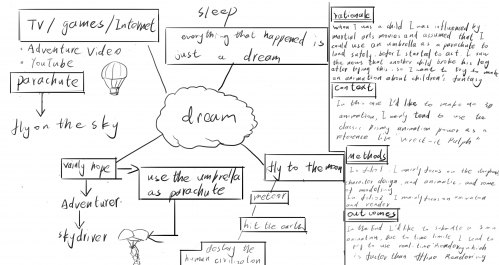 TV/games/Internet
• Adventure Video
• YouTube
parachute
fly on the sky
sleep
everything that happened is
just a dream
dream
vainly hope
Adventurer
skydriver
use the umbrella
as parachute
fly to the moon
meteor
hit the earth
destroy the
human civilization
rationale
When I was a child I was influenced by
martial arts movies and assumed that I
could use an umbrella as a parachute to
land safely, before I started to act I saw
the news that another child broke his leg
after trying this. so I want to try to make
an animation about children's fantasy
context
In this one I'd like to make me
animation, I mainly tend to use the
classic animation as a
reference like
methods
In I mainly focus on the
character design, and animatic and some
of modeling
In I mainly animation
and render
outcomes
In the end I'd like to create a
animation, due to time limits I tend to
try to use real-time Rendering which
is faster than offline Rendering